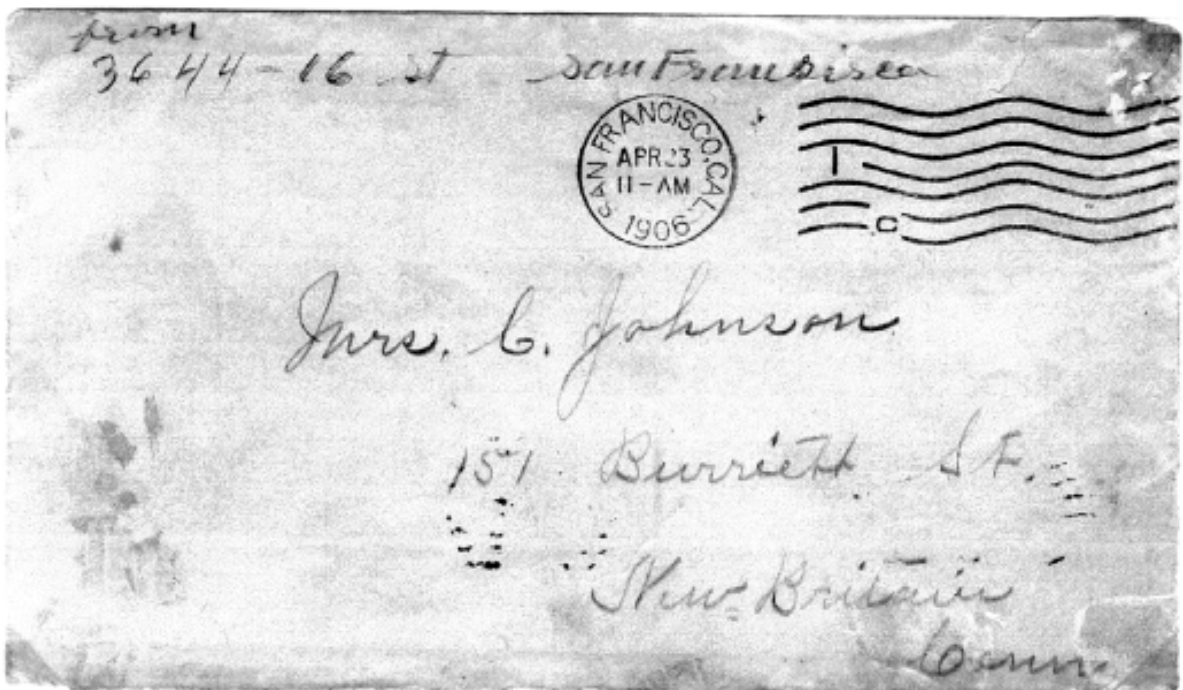 from
3644-16 st San Francisco
SAN FRANCISCO, CAL.
APR 23
11-AM
1906
1
C
Mrs. C. Johnson
151 Burriett St.
New Britain
Conn